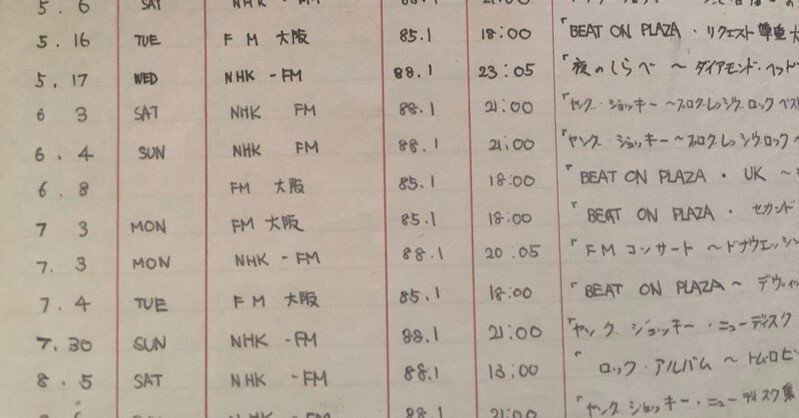 5. 6 SAT NHK-FM 88.1 21:00
5.16 TUE FM 大阪 85.1 18:00 「BEAT ON PLAZA・リクエスト尊重
5.17 WED NHK-FM 88.1 23:05 「夜のしらべ ～ダイアモンド・ヘッド
6 3 SAT NHK FM 88.1 21:00 「ヤング・ジョッキー～プログレッシヴ・ロック ベス
6.4 SUN NHK FM 88.1 21:00 「ヤング・ジョッキー～プログレッシヴロック
6.8 FM 大阪 85.1 18:00 「BEAT ON PLAZA・UK～
7 3 MON FM 大阪 85.1 18:00 「BEAT ON PLAZA・セカンド
7. 3 MON NHK-FM 88.1 20:05 「FMコンサート～ドナウエッシン
7.4 TUE FM 大阪 85.1 18:00 「BEAT ON PLAZA～デヴィッ
7.30 SUN NHK-FM 88.1 21:00 「ヤング ジョッキー・ニューディスク
8.5 SAT NHK-FM 88.1 13:00 ロック・アルバム～トムロビ
NHK-FM 88.1 21:00 「ヤング ジョッキー・ニューディスク集